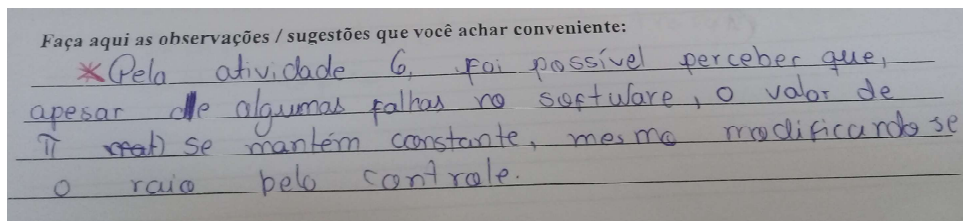 Faça aqui as observações / sugestões que você achar conveniente:
*Pela atividade 6, foi possível perceber que,
apesar de algumas falhas no software, o valor de
π se mantém constante, mesmo modificando se
o raio pelo controle.